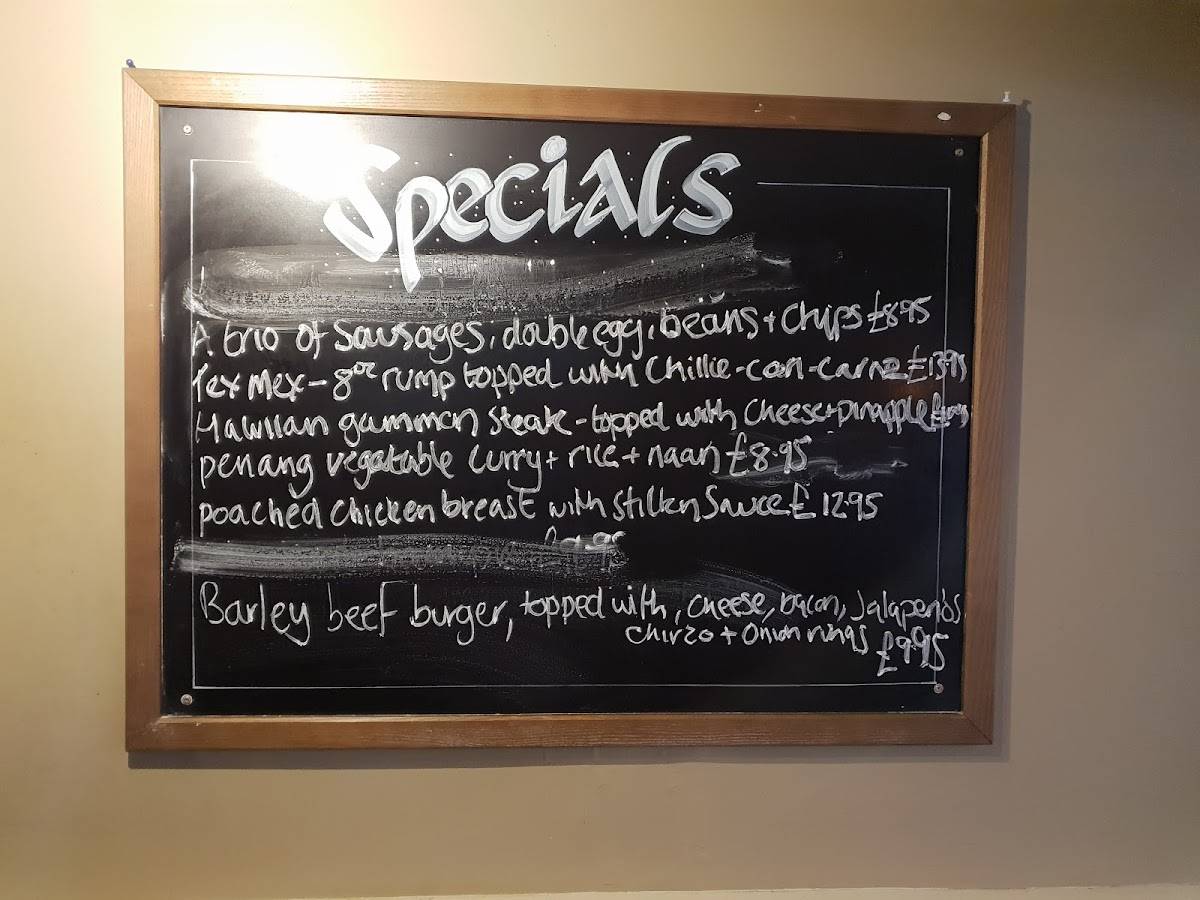 Specials
A brio of Sausages, double egg, beans + Chips £8.95
Tex Mex - 8oz rump topped with Chillie-con-carne £13.95
Hawiian gammon Steak - topped with Cheese + pinapple
penang vegatable curry + rice + naan £8.95
poached chicken breast with stilton Sauce £12.95
Barley beef burger, topped with, cheese, bacon, Jalapeno's,
chirzo + Onion rings
£9.95